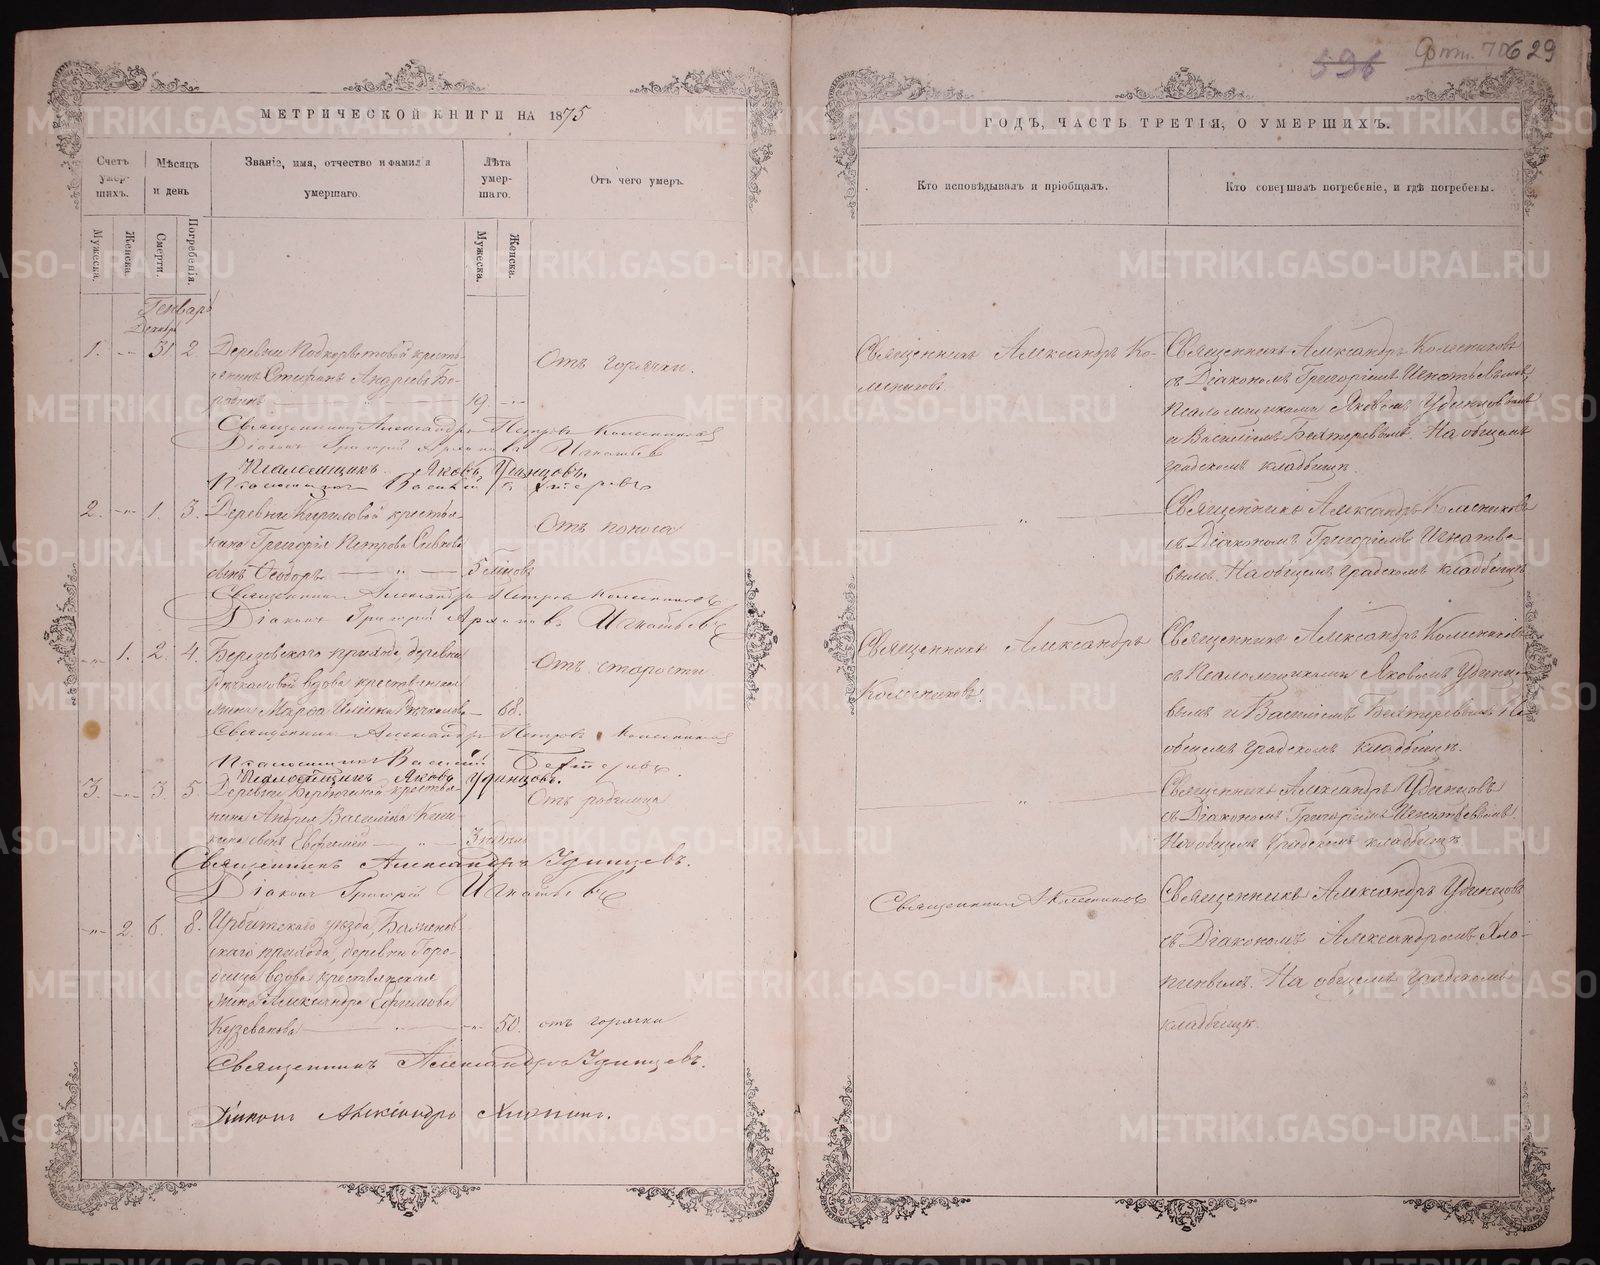 596 629
МЕТРИЧЕСКОЙ КНИГИ НА 1875
ГОДЪ, ЧАСТЬ ТРЕТІЯ, О УМЕРШИХЪ.
Счетъ умершихъ.
Мѣсяцъ и день
Званіе, имя, отчество и фамилія умершаго.
Лѣта умершаго.
Отъ чего умеръ.
Кто исповѣдывалъ и пріобщалъ.
Кто совершалъ погребеніе, и гдѣ погребены.
Мужеска.
Женска.
Смерти.
Погребенія.
Мужеска.
Женска.
Генварь
Декабрь
1. -„- 31 2. Деревни крестья-
янинъ Стефанъ Андреевъ Бо-
19 -„-
Отъ горячки.
Священникъ Александръ Ко-
лесниковъ
Священникъ Александръ Колесниковъ
съ Діакономъ Григоріемъ Игнатьевымъ,
Псаломщикомъ Яковомъ Удинцовымъ
и Василіемъ Бехтеревымъ. На общемъ
градскомъ кладбищѣ.
Священникъ Александръ Петровъ Колесниковъ
Діаконъ Григорій Игнатьевъ
Псаломщикъ Яковъ Удинцовъ.
Псаломщикъ Василій Бехтеревъ
2. -„- 1. 3. Деревни Кириловой крестья-
нина Григорія Петрова
сынъ Ѳеодоръ „ 5 мѣсяцовъ
Отъ поноса
Священникъ Александръ Колесниковъ
съ Діакономъ Григоріемъ Игнатье-
вымъ. На общемъ градскомъ кладбищѣ
Священникъ Александръ Петровъ Колесниковъ
Діаконъ Григорій Игнатьевъ
-„- 1. 2. 4. Березовского прихода, деревни
вдова крестьянская
жена Марѳа 68.
Отъ старости
Священникъ Александръ
Колесниковъ
Священникъ Александръ Колесниковъ
съ Псаломщиками Яковомъ Удинцо-
вымъ и Василіемъ Бехтеревымъ. На
общемъ градскомъ кладбищѣ.
Священникъ Александръ Петровъ Колесниковъ
Псаломщикъ Василій Бехтеревъ.
Псаломщикъ Яковъ Удинцовъ.
3. -„- 3. 5. Деревни крестья-
нина Андрея Василіева
сынъ Евѳимій „ 3 недѣль
Отъ родимца
Священникъ Александръ Удинцовъ
съ Діакономъ Григоріемъ Игнатьевымъ.
На общемъ градскомъ кладбищѣ
Священникъ Александръ Удинцевъ.
Діаконъ Григорій Игнатьевъ
-„- 2. 6. 8. Ирбитскаго уѣзда,
скаго прихода, деревни Горо-
дища вдова крестьянская
жена Александра Ефимова
Кузеванова -„- 50. отъ горячки
Священникъ А Колесниковъ
Священникъ Александръ Удинцовъ
съ Діакономъ Александромъ Хло-
пинымъ. На общемъ градскомъ
кладбищѣ.
Священникъ Александръ Удинцевъ.
Діаконъ Александръ Хлопинъ.
METRIKI.GASO-URAL.RU